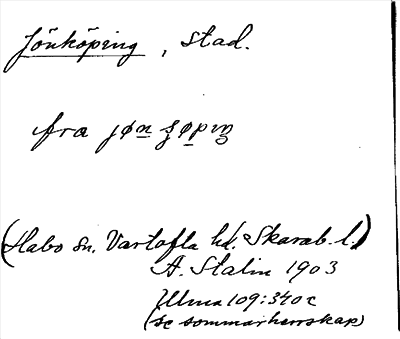 Jönköping, stad.
fra
(Habo sn. Vartofta hd. Skarab. l.)
A. Stalin 1903
Ulma 109:340 c
(se sommarherrskap)